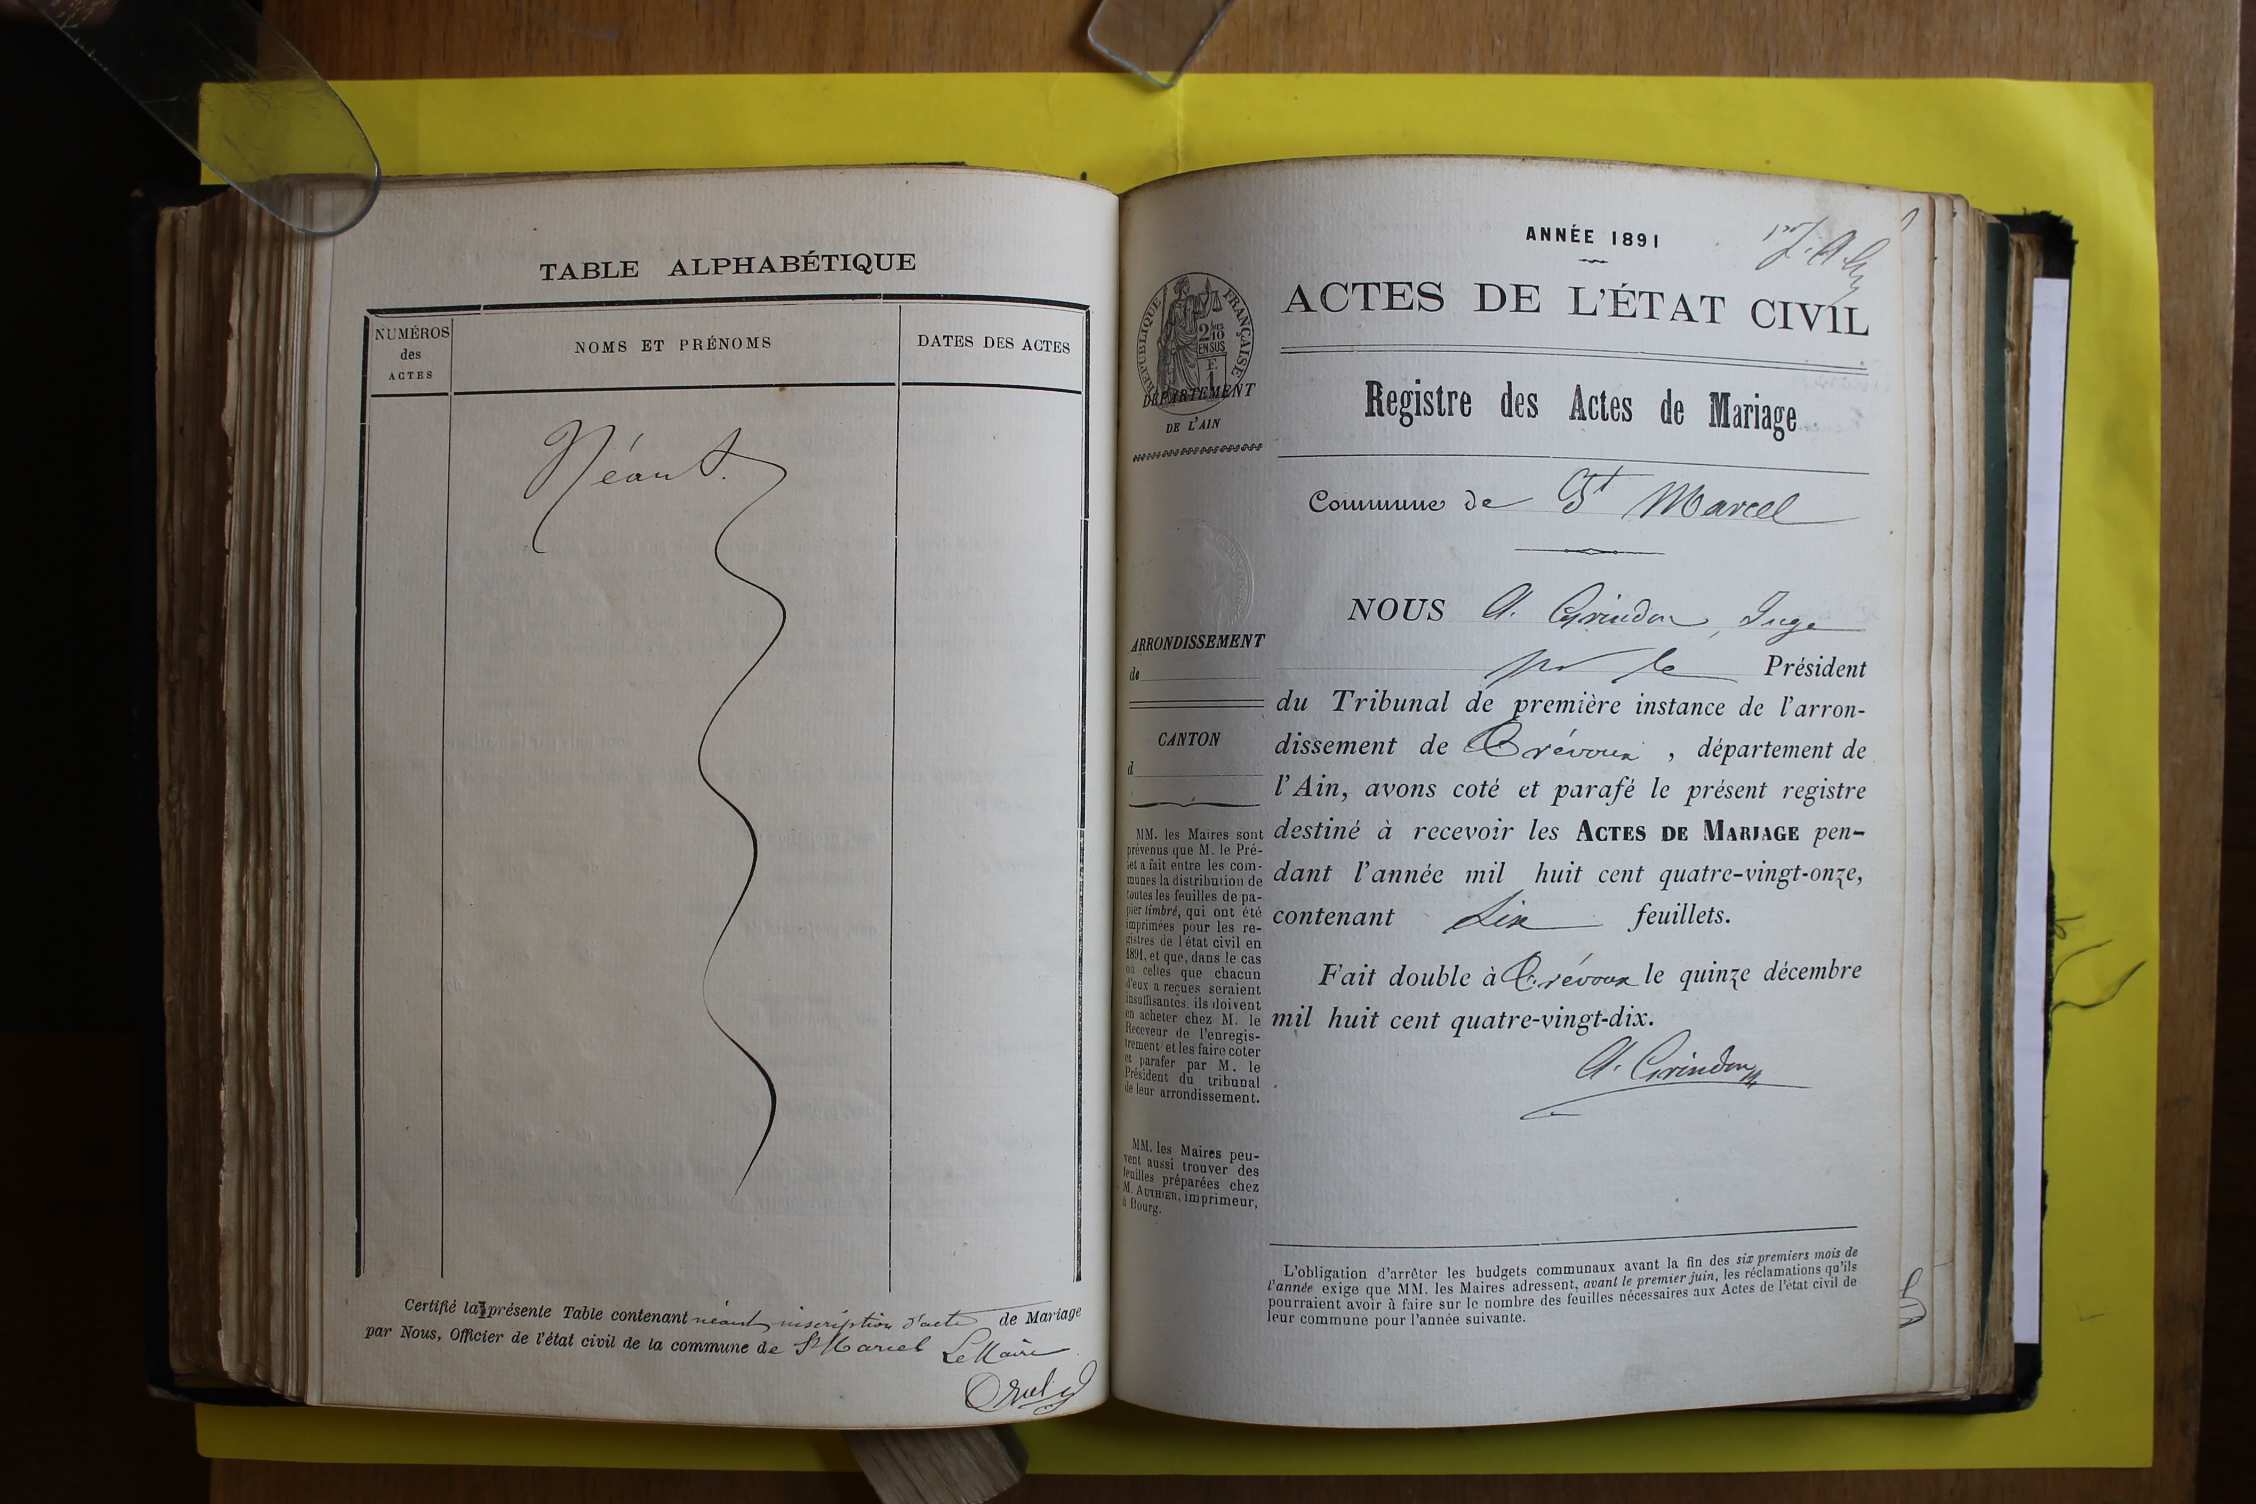 TABLE ALPHABÉTIQUE
NUMÉROS
des
ACTES
NOMS ET PRÉNOMS
DATES DES ACTES
Néant.
Certifié la présente Table contenant néant inscription d'acte de Mariage
par Nous, Officier de l'état civil de la commune de St Marcel Le Maire
ANNÉE 1891
ACTES DE L'ÉTAT CIVIL
RÉPUBLIQUE FRANÇAISE
2/10
EN SUS
DÉPARTEMENT
DE L'AIN
Registre des Actes de Mariage
Commune de St Marcel
NOUS A. Grindon, Juge
pr le Président
du Tribunal de première instance de l'arron-
dissement de Trévoux, département de
l'Ain, avons coté et parafé le présent registre
destiné à recevoir les ACTES DE MARIAGE pen-
dant l'année mil huit cent quatre-vingt-onze,
contenant six feuillets.
Fait double à Trévoux le quinze décembre
mil huit cent quatre-vingt-dix.
A. Grindon
ARRONDISSEMENT
de
CANTON
d
MM. les Maires sont
prévenus que M. le Pré-
fet a fait entre les com-
munes la distribution de
toutes les feuilles de pa-
pier timbré, qui ont été
imprimées pour les re-
gistres de l'état civil en
1891, et que, dans le cas
où celles que chacun
d'eux a reçues seraient
insuffisantes, ils doivent
en acheter chez M. le
Receveur de l'enregis-
trement et les faire coter
et parafer par M. le
Président du tribunal
de leur arrondissement.
MM. les Maires peu-
vent aussi trouver des
feuilles préparées chez
M. AUTHIER, imprimeur,
à Bourg.
L'obligation d'arrêter les budgets communaux avant la fin des six premiers mois de
l'année exige que MM. les Maires adressent, avant le premier juin, les réclamations qu'ils
pourraient avoir à faire sur le nombre des feuilles nécessaires aux Actes de l'état civil de
leur commune pour l'année suivante.